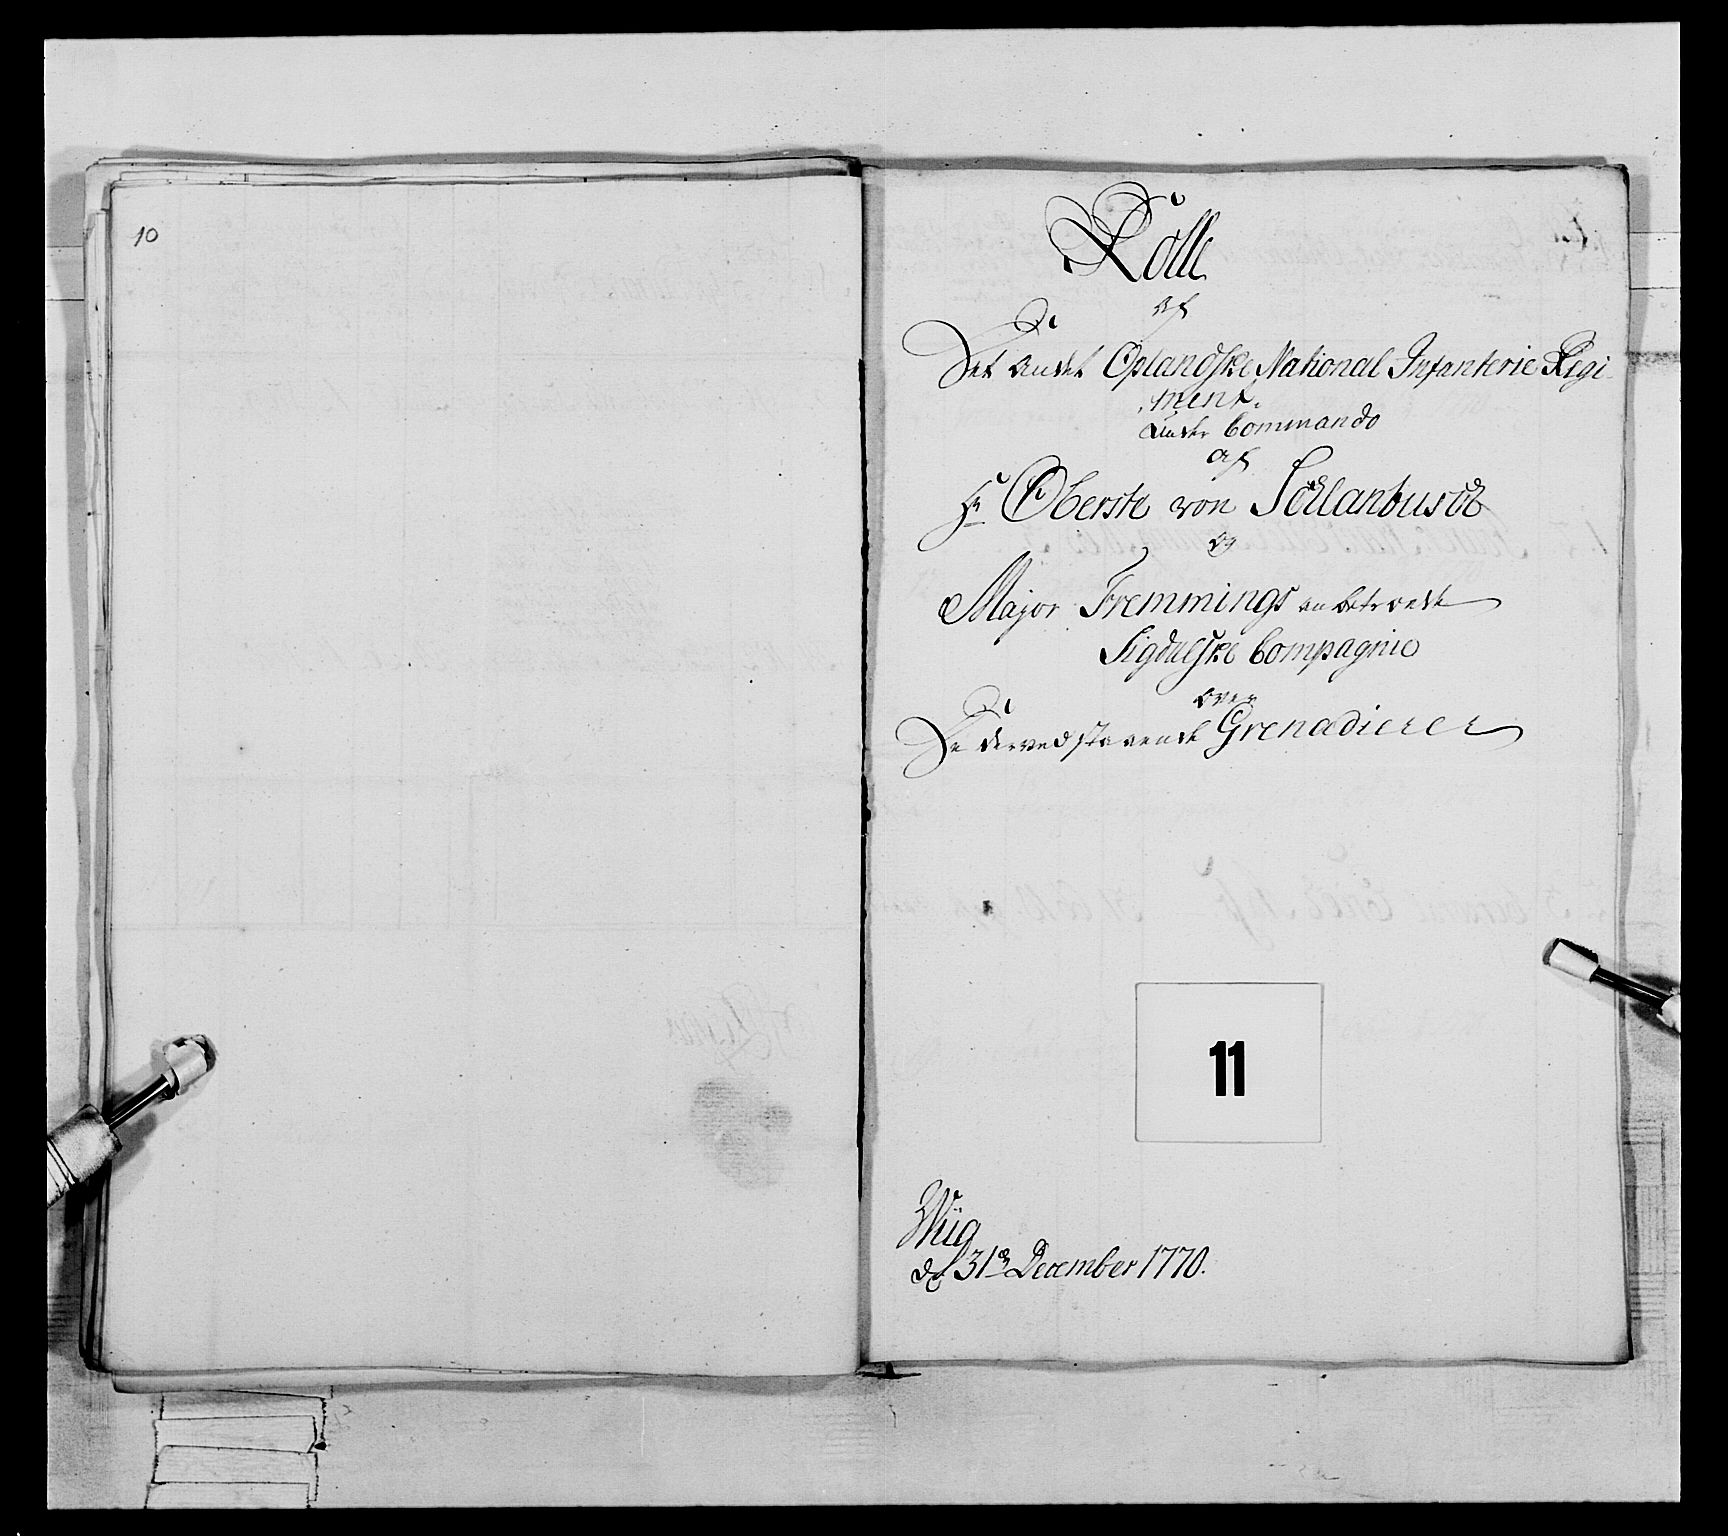 10
Rolle
af
Det Andet Oplandske National Infanterie Regi-
ment.
under Commando
af
Hr Oberste von Schlanbusch
og
Major Fremmings anbetroede
Sigdalske Compagnie
over
De derved staaende Grenadierer
11
Wiig
d 31te December 1770.